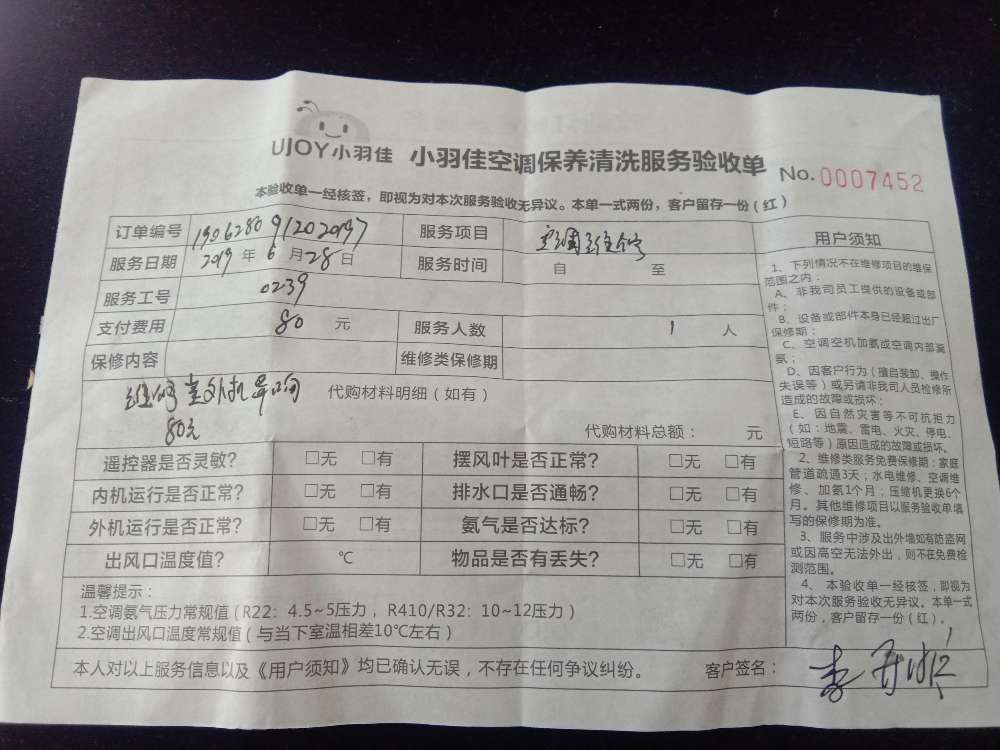 UJOY小羽佳 小羽佳空调保养清洗服务验收单 No. 0007452
本验收单一经核签，即视为对本次服务验收无异议。本单一式两份，客户留存一份（红）
订单编号 服务项目 空调维修
服务日期 2019 年 6 月 28 日 服务时间 自 至
服务工号 0239
支付费用 80 元 服务人数 1 人
保修内容 维修类保修期
维修 外机异响 代购材料明细（如有）
80元
代购材料总额： 元
遥控器是否灵敏？ □无 □有 摆风叶是否正常？ □无 □有
内机运行是否正常？ □无 □有 排水口是否通畅？ □无 □有
外机运行是否正常？ □无 □有 氨气是否达标？ □无 □有
出风口温度值？ ℃ 物品是否有丢失？ □无 □有
温馨提示：
1.空调氨气压力常规值（R22：4.5~5压力，R410/R32：10~12压力）
2.空调出风口温度常规值（与当下室温相差10℃左右）
本人对以上服务信息以及《用户须知》均已确认无误，不存在任何争议纠纷。 客户签名：
用户须知
1、下列情况不在维修项目的维保
范围之内：
A、非我司员工提供的设备或部
件；
B、设备或部件本身已经超过出厂
保修期；
C、空调空机加氨或空调内部漏
氨；
D、因客户行为（擅自装卸、操作
失误等）或另请非我司人员检修所
造成的故障或损坏；
E、因自然灾害等不可抗拒力
（如：地震、雷电、火灾、停电、
短路等）原因造成的故障或损坏。
2、维修类服务免费保修期：家庭
管道疏通3天；水电维修、空调维
修、加氨1个月；压缩机更换6个
月。其他维修项目以服务验收单填
写的保修期为准。
3、服务中涉及出外墙如有防盗网
或因高空无法外出，则不在免费检
测范围。
4、本验收单一经核签，即视为
对本次服务验收无异议。本单一式
两份，客户留存一份（红）。